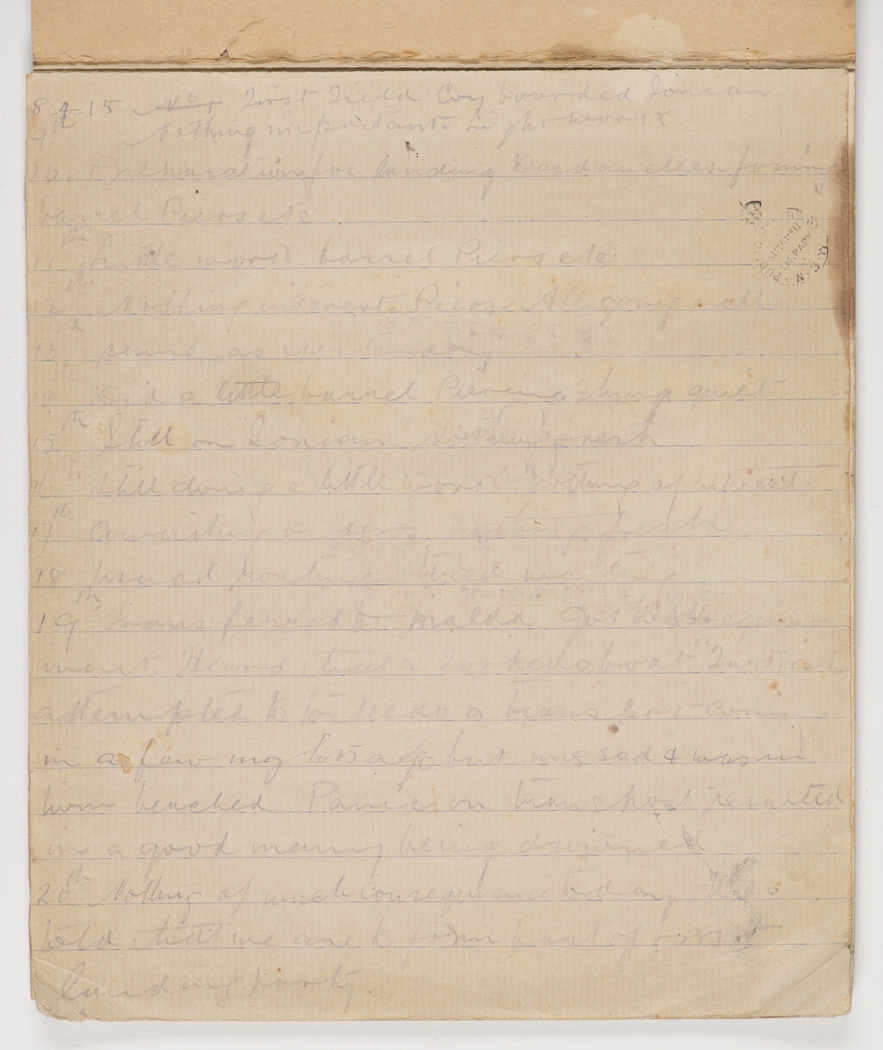 8-4-15 No 1 First Field Coy boarded Ionian
9th Nothing important in the work
10. Preparation for landing Dardanelles forming
barrel Piers etc
11th Little work barrel Piers etc
12th Nothing interest. Piers. All going. all
13th same as yesterday
Did a little barrel Piering. Things quiet
15th Still on "Ionian" Nothing fresh
16th Still doing a little work nothing of interest.
17th awaiting orders nothing fresh
18 Usual routine tired waiting
19th Transferred to Malda. Got equip
ment. Heard that a torpedo boat
attempted to torpedo a transport coming
in a few nights ago but missed & was in
turn beached. Panic on transport resulted
in a good many being drowned
20th Nothing of much consequence today. Was
told that we are to form part of first
landing party.
PUBLIC LIBRARY N.S.W.
MITCHELL